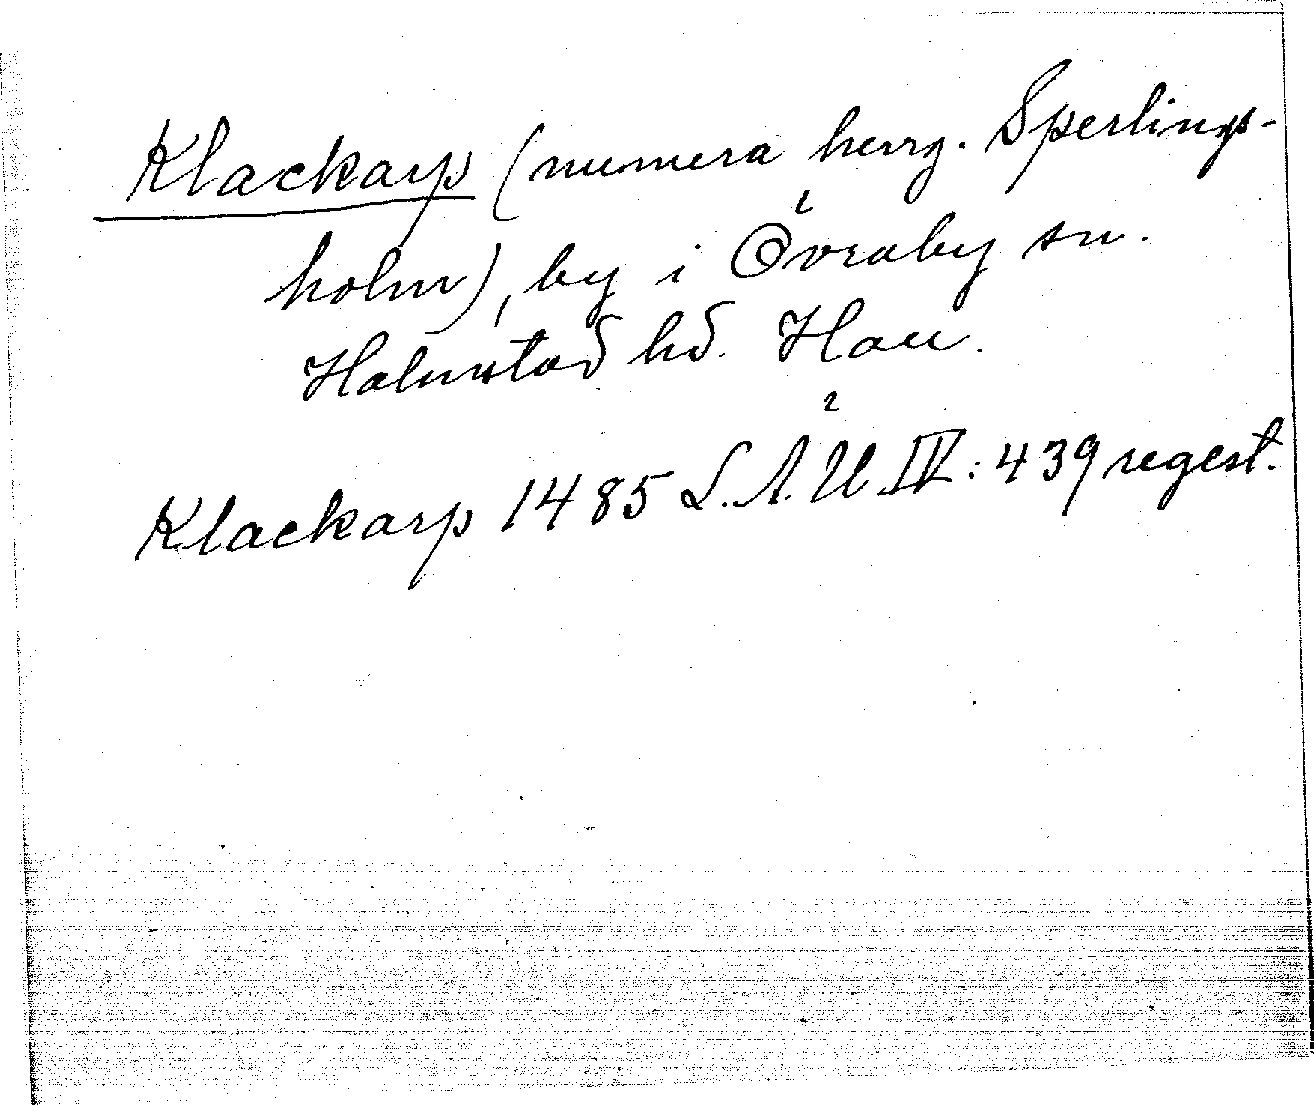 Klackarp (numera herrg. Sperlings-
holm), by i Övraby sn.
Halmstad hd. Hall.
Klackarp 1485 S.Å.U IV: 439 regest.